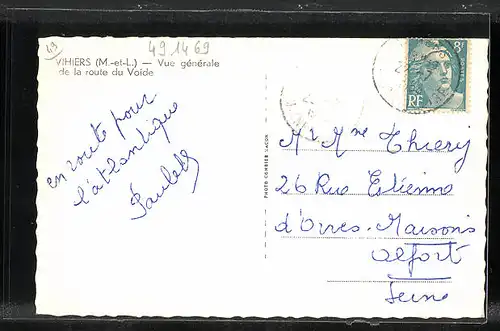 49
491469
VIHIERS (M.-et-L.) — Vue générale
de la route du Voide
en route pour
l'atlantique
Paulette
8F
POSTES
RF
PHOTO COMBIER MACON
Mr Mme Thierry
26 Rue Etienne
d'Orves. Maisons
Alfort
Seine